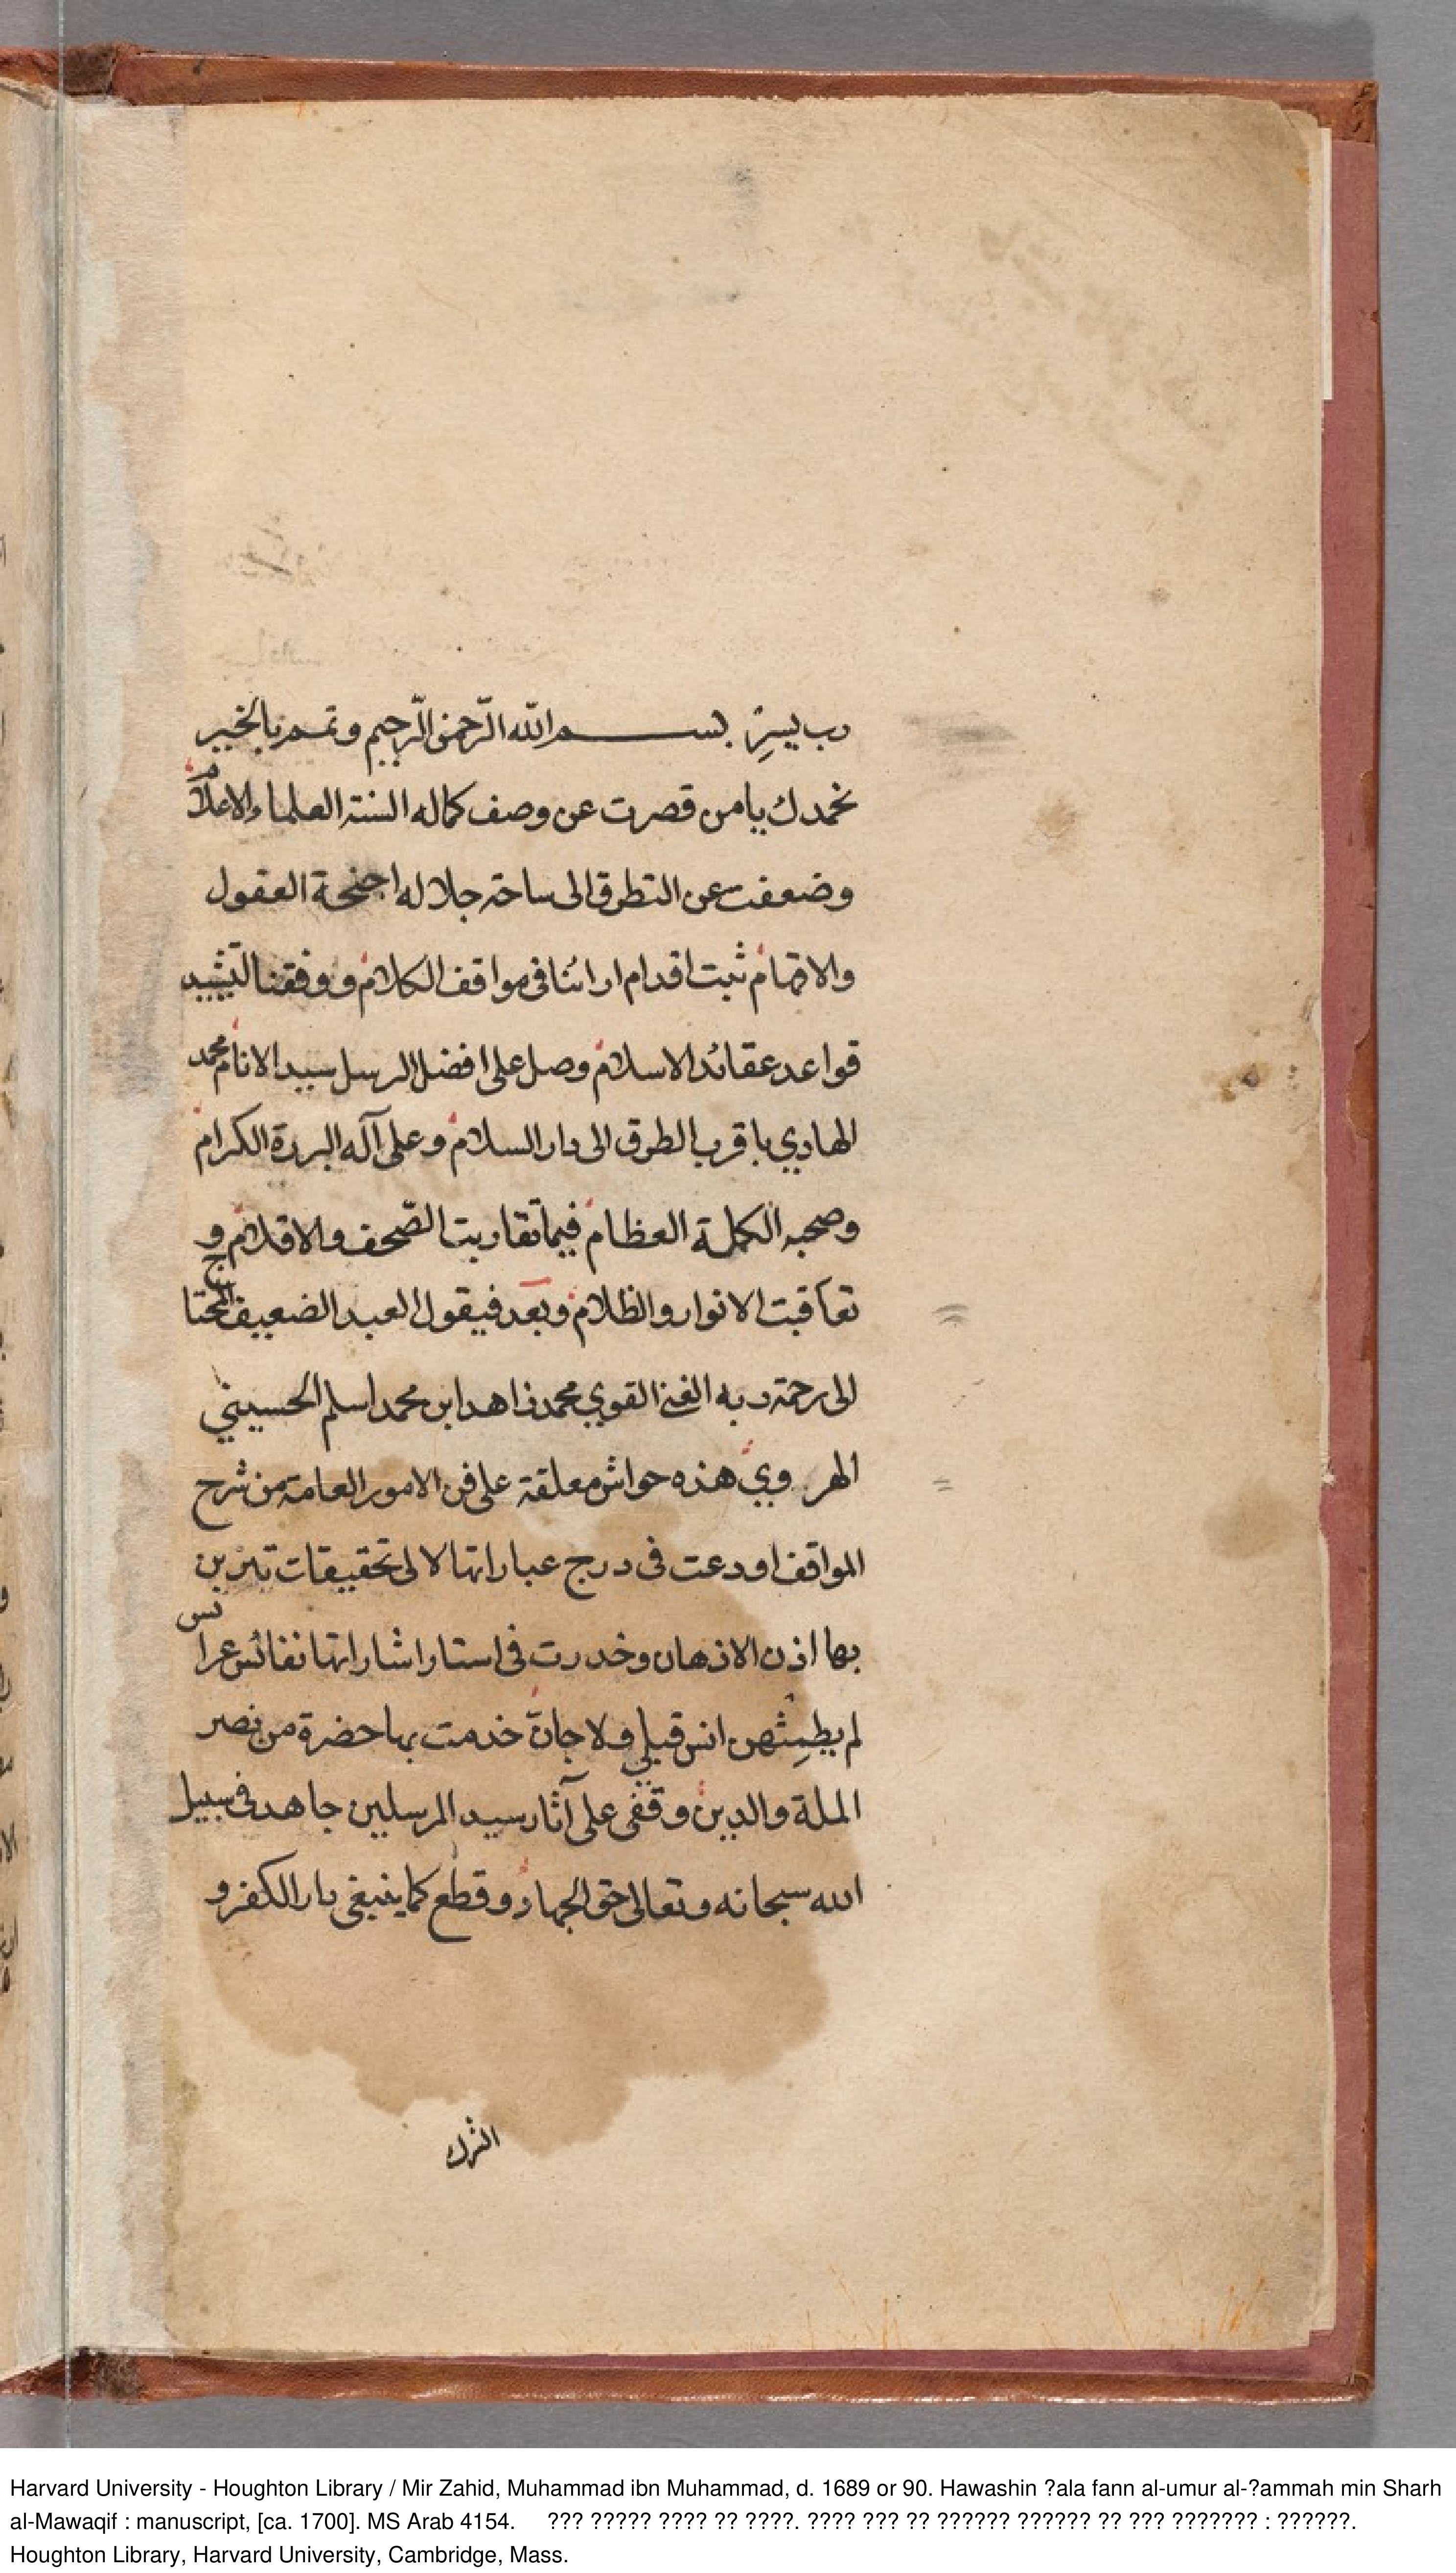 رب يسر بسم الله الرّحمن الرّحيم وتمم بالخير
نحمدك يا من قصرت عن وصف كماله السنة العلماء الاعلام
وضعفت عن التطرق الى ساحة جلاله اجنحة العقول
والافهام ثبت اقدام ارائنا فى مواقف الكلام ووفقنا لتشييد
قواعد عقائد الاسلام وصل على افضل الرسل سيد الانام محمد
الهادي باقرب الطرق الى دار السلام وعلى آله البررة الكرام
وصحبه الكملة العظام فيما تقاربت الصّحف والاقلام و
تعاقبت الانوار والظلام وبعد فيقول العبد الضعيف المحتاج
الى رحمة ربه الغني القوي محمد زاهد ابن محمد اسلم الحسيني
الهروي هذه حواش معلقة على فن الامور العامة من شرح
المواقف اودعت فى درج عباراتها لالى تحقيقات تتزين
بها اذن الاذهان وخدرت فى استار اشاراتها نفائس عرائس
لم يطمِثهن انس قبلي ولا جانّ خدمت بها حضرة من نصر
الملة والدين وقفى على آثار سيد المرسلين جاهد فى سبيل
الله سبحانه وتعالى حق الجهاد وقطع كما ينبغى دار الكفر و
الشرك
Harvard University - Houghton Library / Mir Zahid, Muhammad ibn Muhammad, d. 1689 or 90. Hawashin ?ala fann al-umur al-?ammah min Sharh
al-Mawaqif : manuscript, [ca. 1700]. MS Arab 4154. ??? ????? ???? ?? ????. ???? ??? ?? ?????? ?????? ?? ??? ??????? : ??????.
Houghton Library, Harvard University, Cambridge, Mass.